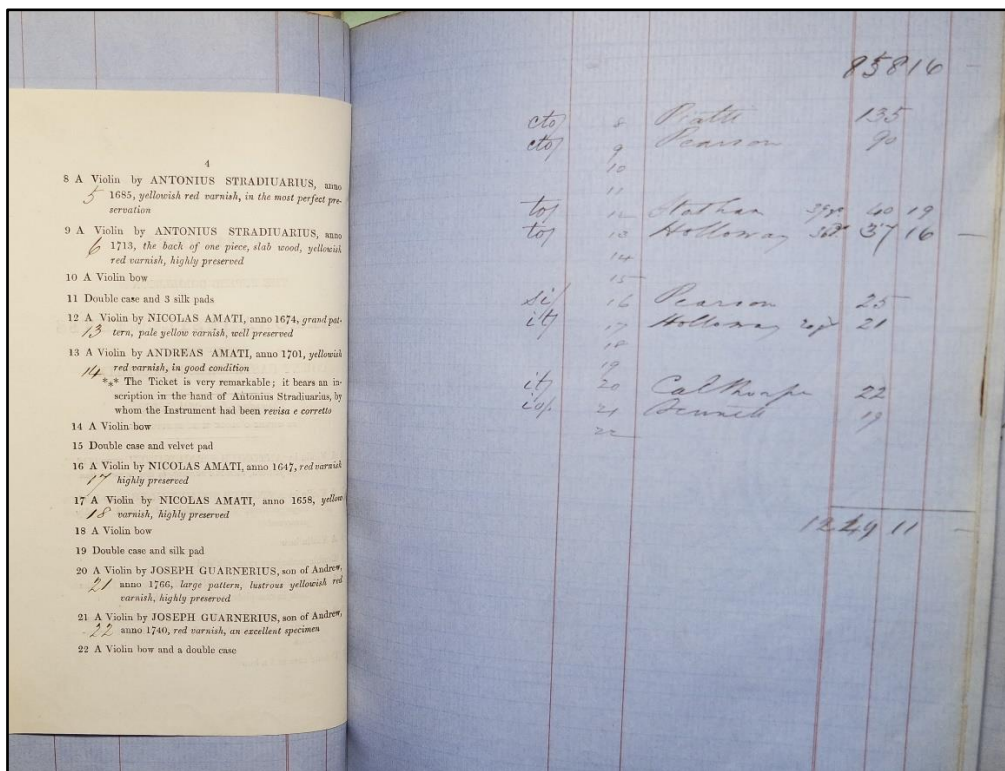 4
8 A Violin by ANTONIUS STRADIUARIUS, anno
5 1685, yellowish red varnish, in the most perfect pre-
servation
9 A Violin by ANTONIUS STRADIUARIUS, anno
6 1713, the back of one piece, slab wood, yellowish
red varnish, highly preserved
10 A Violin bow
11 Double case and 3 silk pads
12 A Violin by NICOLAS AMATI, anno 1674, grand pat-
13 tern, pale yellow varnish, well preserved
13 A Violin by ANDREAS AMATI, anno 1701, yellowish
14 red varnish, in good condition
*** The Ticket is very remarkable; it bears an in-
scription in the hand of Antonius Stradiuarius, by
whom the Instrument had been revisa e corretto
14 A Violin bow
15 Double case and velvet pad
16 A Violin by NICOLAS AMATI, anno 1647, red varnish
17 highly preserved
17 A Violin by NICOLAS AMATI, anno 1658, yellow
18 varnish, highly preserved
18 A Violin bow
19 Double case and silk pad
20 A Violin by JOSEPH GUARNERIUS, son of Andrew,
21 anno 1766, large pattern, lustrous yellowish red
varnish, highly preserved
21 A Violin by JOSEPH GUARNERIUS, son of Andrew,
22 anno 1740, red varnish, an excellent specimen
22 A Violin bow and a double case
858 16 -
cto/ 8 Piatti 135
cto/ 9 Pearson 90
10
11
to/ 12 40 19
to/ 13 Holloway 37 16 -
14
15
si/ 16 Pearson 25
it/ 17 Holloway 21
18
19
it/ 20 Calthorpe 22
21 Bennett 19
22
1249 11 -